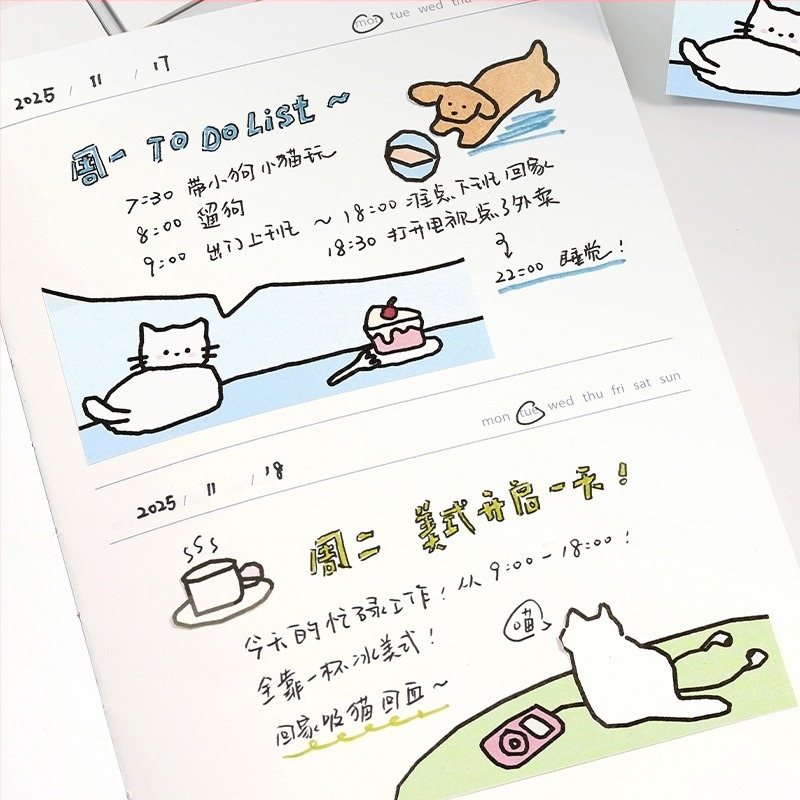 mon tue wed thu
2025 / 11 / 17
周一 TO DO List ~
7:30 带小狗小猫玩
8:00 遛狗
9:00 出门上班 ~ 18:00 准点下班回家
18:30 打开电视点了外卖
22:00 睡觉!
mon tue wed thu fri sat sun
2025 / 11 / 18
周二 美式开启一天!
今天的忙碌工作!从 9:00 - 18:00!
全靠一杯冰美式!
喵
回家吸猫回血~